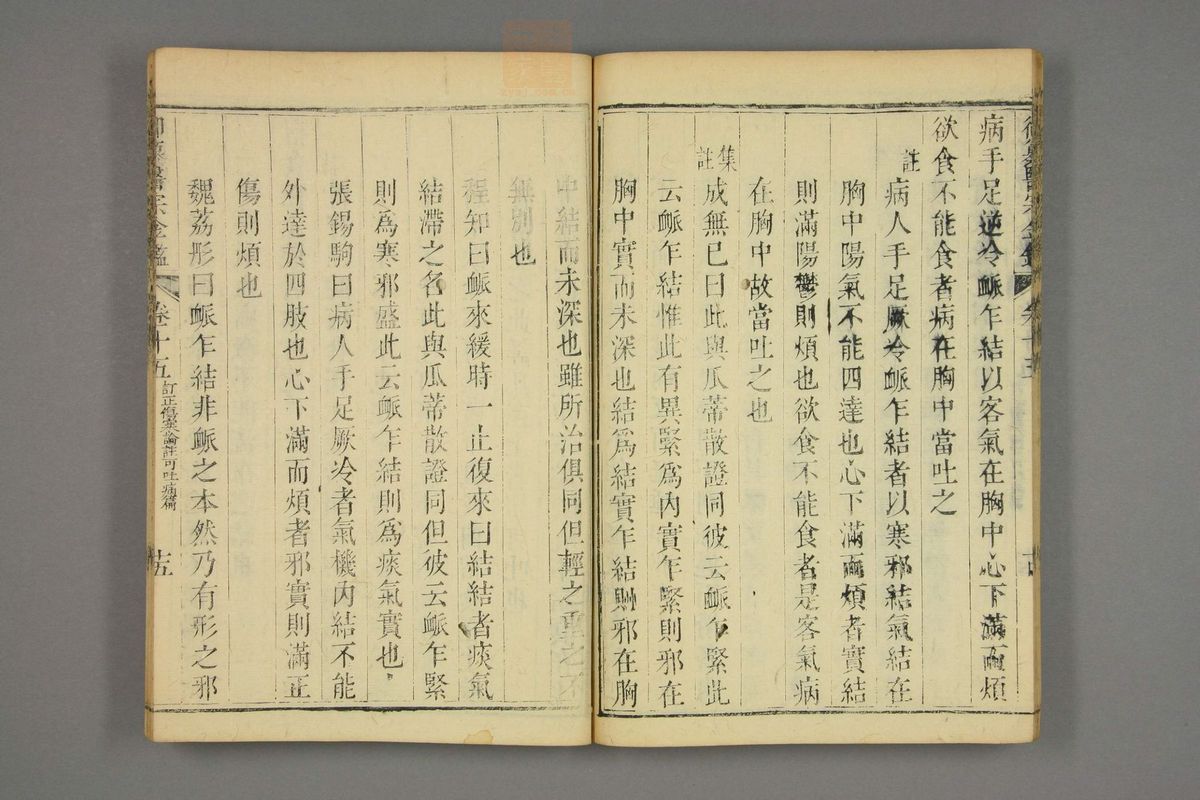 御纂醫宗金鑑 卷十五
病手足逆冷䘑乍結以客氣在胸中心下滿而煩
欲食不能食者病在胸中當吐之
註
病人手足厥冷䘑乍結者以寒邪結氣結在
胸中陽氣不能四達也心下滿而煩者實結
則滿陽鬱則煩也欲食不能食者是客氣病
在胸中故當吐之也
集註
成無已曰此與瓜蒂散證同彼云䘑乍緊此
云䘑乍結惟此有異緊爲內實乍緊則邪在
胸中實而未深也結爲結實乍結則邪在胸
中結而未深也雖所治俱同但輕之重之不
無別也
程知曰䘑來緩時一止復來曰結結者痰氣
結滯之名此與瓜蒂散證同但彼云䘑乍緊
則爲寒邪盛此云䘑乍結則爲痰氣實也
張錫駒曰病人手足厥冷者氣機內結不能
外達於四肢也心下滿而煩者邪實則滿正
傷則煩也
魏荔彤曰䘑乍結非䘑之本然乃有形之邪
御纂醫宗金鑑 卷十五 訂正傷寒論註可吐病篇 十五